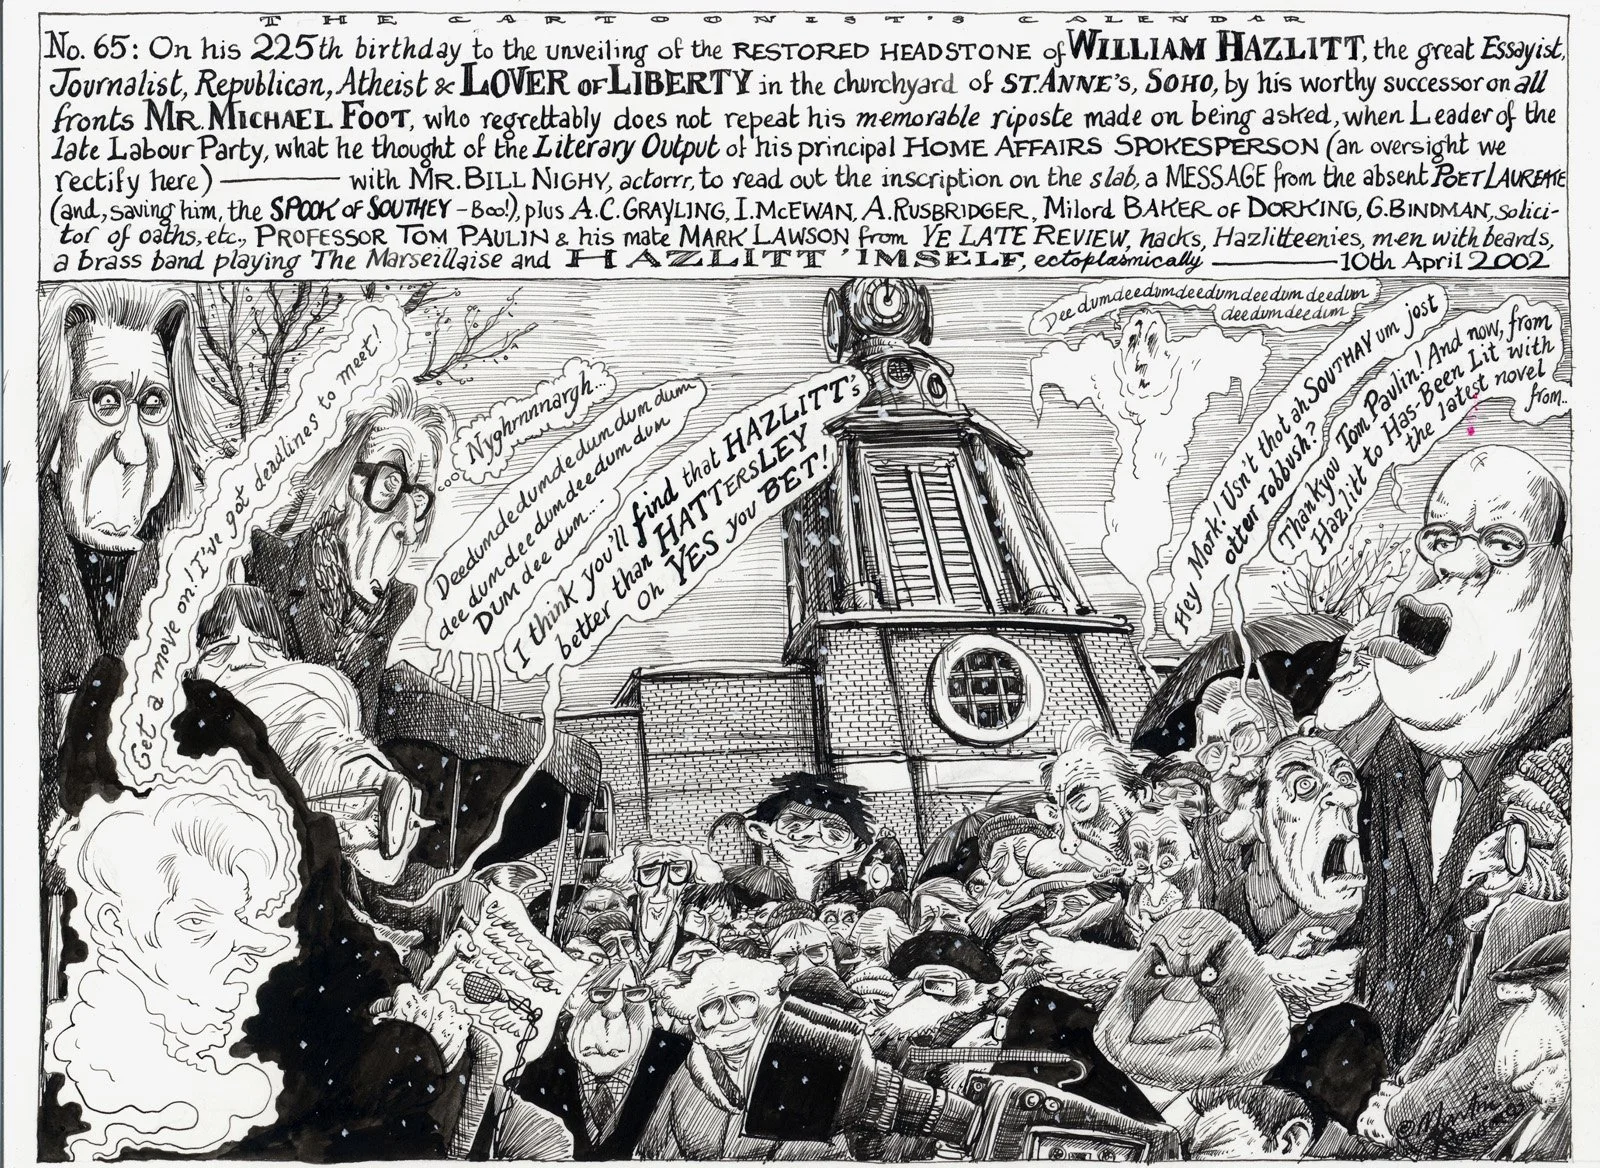 THE CARTOONIST'S CALENDAR
No. 65: On his 225th birthday to the unveiling of the RESTORED HEADSTONE of WILLIAM HAZLITT, the great Essayist,
Journalist, Republican, Atheist & LOVER OF LIBERTY in the churchyard of ST. ANNE'S, SOHO, by his worthy successor on all
fronts MR. MICHAEL FOOT, who regrettably does not repeat his memorable riposte made on being asked, when Leader of the
late Labour Party, what he thought of the Literary Output of his principal HOME AFFAIRS SPOKESPERSON (an oversight we
rectify here) — with MR. BILL NIGHY, actorrr, to read out the inscription on the slab, a MESSAGE from the absent POET LAUREATE
(and, saving him, the SPOOK OF SOUTHEY - Boo!), plus A.C. GRAYLING, I. McEWAN, A. RUSBRIDGER, Milord BAKER OF DORKING, G. BINDMAN, solici-
tor of oaths, etc., PROFESSOR TOM PAULIN & his mate MARK LAWSON from YE LATE REVIEW, hacks, Hazlitteenies, men with beards,
a brass band playing The Marseillaise and HAZLITT 'IMSELF, ectoplasmically — 10th April 2002
Get a move on! I've got deadlines to meet!
... Nyghrnnnargh...
Deedumdedumdedumdedumdumdum
dee dum dee dum dee dum dum
DUM dee dum...
(I think you'll find that HAZLITT's
better than HATTERSLEY
Oh YES you BET!
Dee dumdeedumdeedumdeedumdeedum
deedumdeedum
Hey Mork! Usn't thot ah SOUTHAY um jost
otterr robbush?
Thankyou Tom Paulin! And now, from
Hazlitt to Has-Been Lit with
the latest novel
from..
© Martin
Rowson 2002